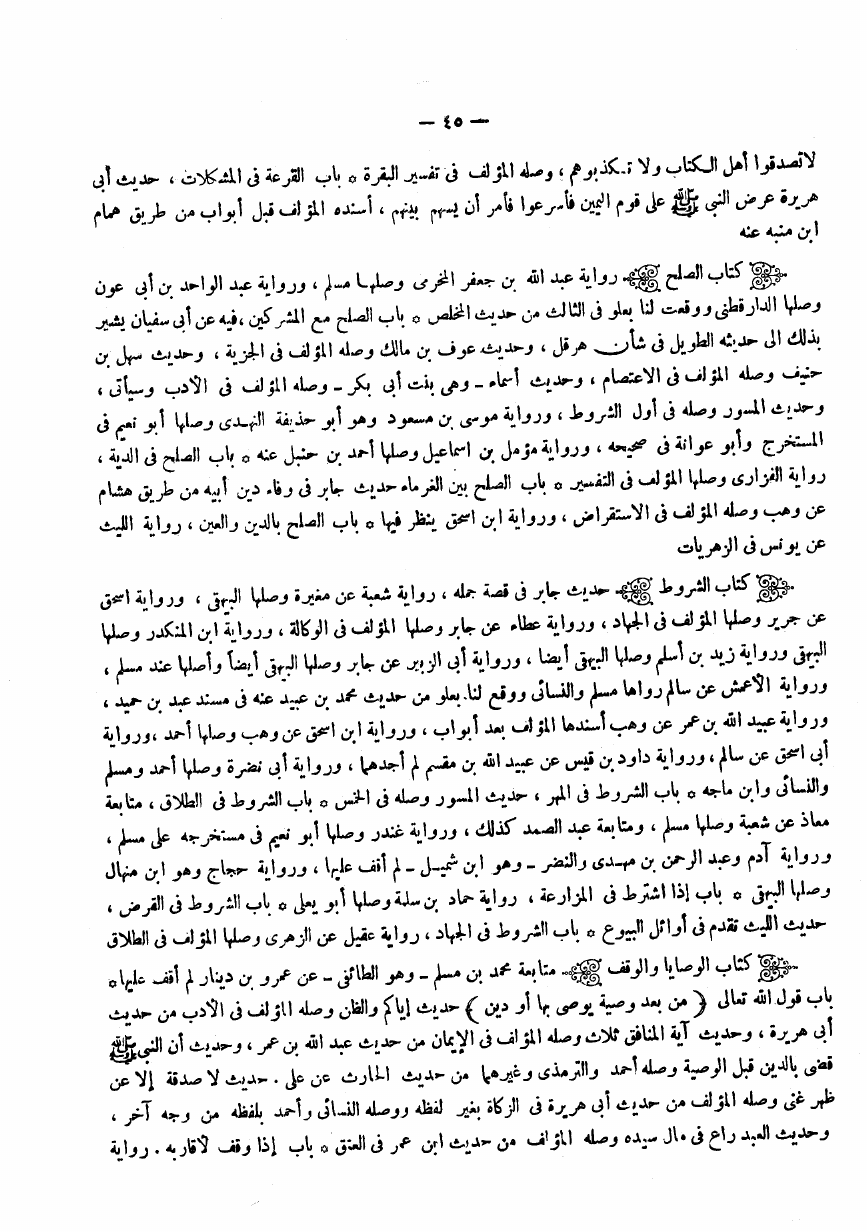 — ٤٥ —
لا تصدقوا أهل الكتاب ولا تكذبوهم ، وصله المؤلف فى تفسير البقرة * باب القرعة فى المشكلات ، حديث أبى
هريرة عرض النبى ﷺ على قوم اليمين فأسرعوا فأمر أن يسهم بينهم ، أسنده المؤلف قبل أبواب من طريق همام
ابن منبه عنه
كتاب الصلح رواية عبد الله بن جعفر المخرمى وصلها مسلم ، ورواية عبد الواحد بن أبى عون
وصلها الدارقطنى ووقعت لنا بعلو فى الثالث من حديث المخلص * باب الصلح مع المشركين ، فيه عن أبى سفيان يشير
بذلك الى حديثه الطويل فى شأن هرقل ، وحديث عوف بن مالك وصله المؤلف فى الجزية ، وحديث سهل بن
حنيف وصله المؤلف فى الاعتصام ، وحديث أسماء ـ وهى بنت أبى بكر ـ وصله المؤلف فى الأدب وسيأتى ،
وحديث المسور وصله فى أول الشروط ، ورواية موسى بن مسعود وهو أبو حذيفة النهدى وصلها أبو نعيم فى
المستخرج وأبو عوانة فى صحيحه ، ورواية مؤمل بن اسماعيل وصلها أحمد بن حنبل عنه * باب الصلح فى الدية ،
رواية الفزارى وصلها المؤلف فى التفسير * باب الصلح بين الغرماء حديث جابر فى وفاء دين أبيه من طريق هشام
عن وهب وصله المؤلف فى الاستقراض ، ورواية ابن اسحق ينظر فيها * باب الصلح بالدين والعين ، رواية الليث
عن يونس فى الزهريات
كتاب الشروط حديث جابر فى قصة جمله ، رواية شعبة عن مغيرة وصلها البيهقى ، ورواية اسحق
عن جرير وصلها المؤلف فى الجهاد ، ورواية عطاء عن جابر وصلها المؤلف فى الوكالة ، ورواية ابن المنكدر وصلها
البيهقى ورواية زيد بن أسلم وصلها البيهقى أيضا ، ورواية أبى الزبير عن جابر وصلها البيهقى أيضاً وأصلها عند مسلم ،
ورواية الأعمش عن سالم رواها مسلم والنسائى ووقع لنا بعلو من حديث محمد بن عبيد عنه فى مسند عبد بن حميد ،
ورواية عبيد الله بن عمر عن وهب أسندها المؤلف بعد أبواب ، ورواية ابن اسحق عن وهب وصلها أحمد ، ورواية
أبى اسحق عن سالم ، ورواية داود بن قيس عن عبيد الله بن مقسم لم أجدهما ، ورواية أبى نضرة وصلها أحمد ومسلم
والنسائى وابن ماجه * باب الشروط فى المهر ، حديث المسور وصله فى الخمس * باب الشروط فى الطلاق ، متابعة
معاذ عن شعبة وصلها مسلم ، ومتابعة عبد الصمد كذلك ، ورواية غندر وصلها أبو نعيم فى مستخرجه على مسلم ،
ورواية آدم وعبد الرحمن بن مهدى والنضر ـ وهو ابن شميل ـ لم أقف عليها ، ورواية حجاج وهو ابن منهال
وصلها البيهقى * باب إذا اشترط فى المزارعة ، رواية حماد بن سلمة وصلها أبو يعلى * باب الشروط فى القرض ،
حديث الليث تقدم فى أوائل البيوع * باب الشروط فى الجهاد ، رواية عقيل عن الزهرى وصلها المؤلف فى الطلاق
كتاب الوصايا والوقف متابعة محمد بن مسلم ـ وهو الطائفى ـ عن عمرو بن دينار لم أقف عليها *
باب قول الله تعالى ( من بعد وصية يوصى بها أو دين ) حديث إياكم والظن وصله المؤلف فى الأدب من حديث
أبى هريرة ، وحديث آية المنافق ثلاث وصله المؤلف فى الإيمان من حديث عبد الله بن عمر ، وحديث أن النبى ﷺ
قضى بالدين قبل الوصية وصله أحمد والترمذى وغيرهما من حديث الحارث عن على . حديث لا صدقة إلا عن
ظهر غنى وصله المؤلف من حديث أبى هريرة فى الزكاة بغير لفظه ووصله النسائى وأحمد بلفظه من وجه آخر ،
وحديث العبد راع فى مال سيده وصله المؤلف من حديث ابن عمر فى العتق * باب إذا وقف لأقاربه . رواية